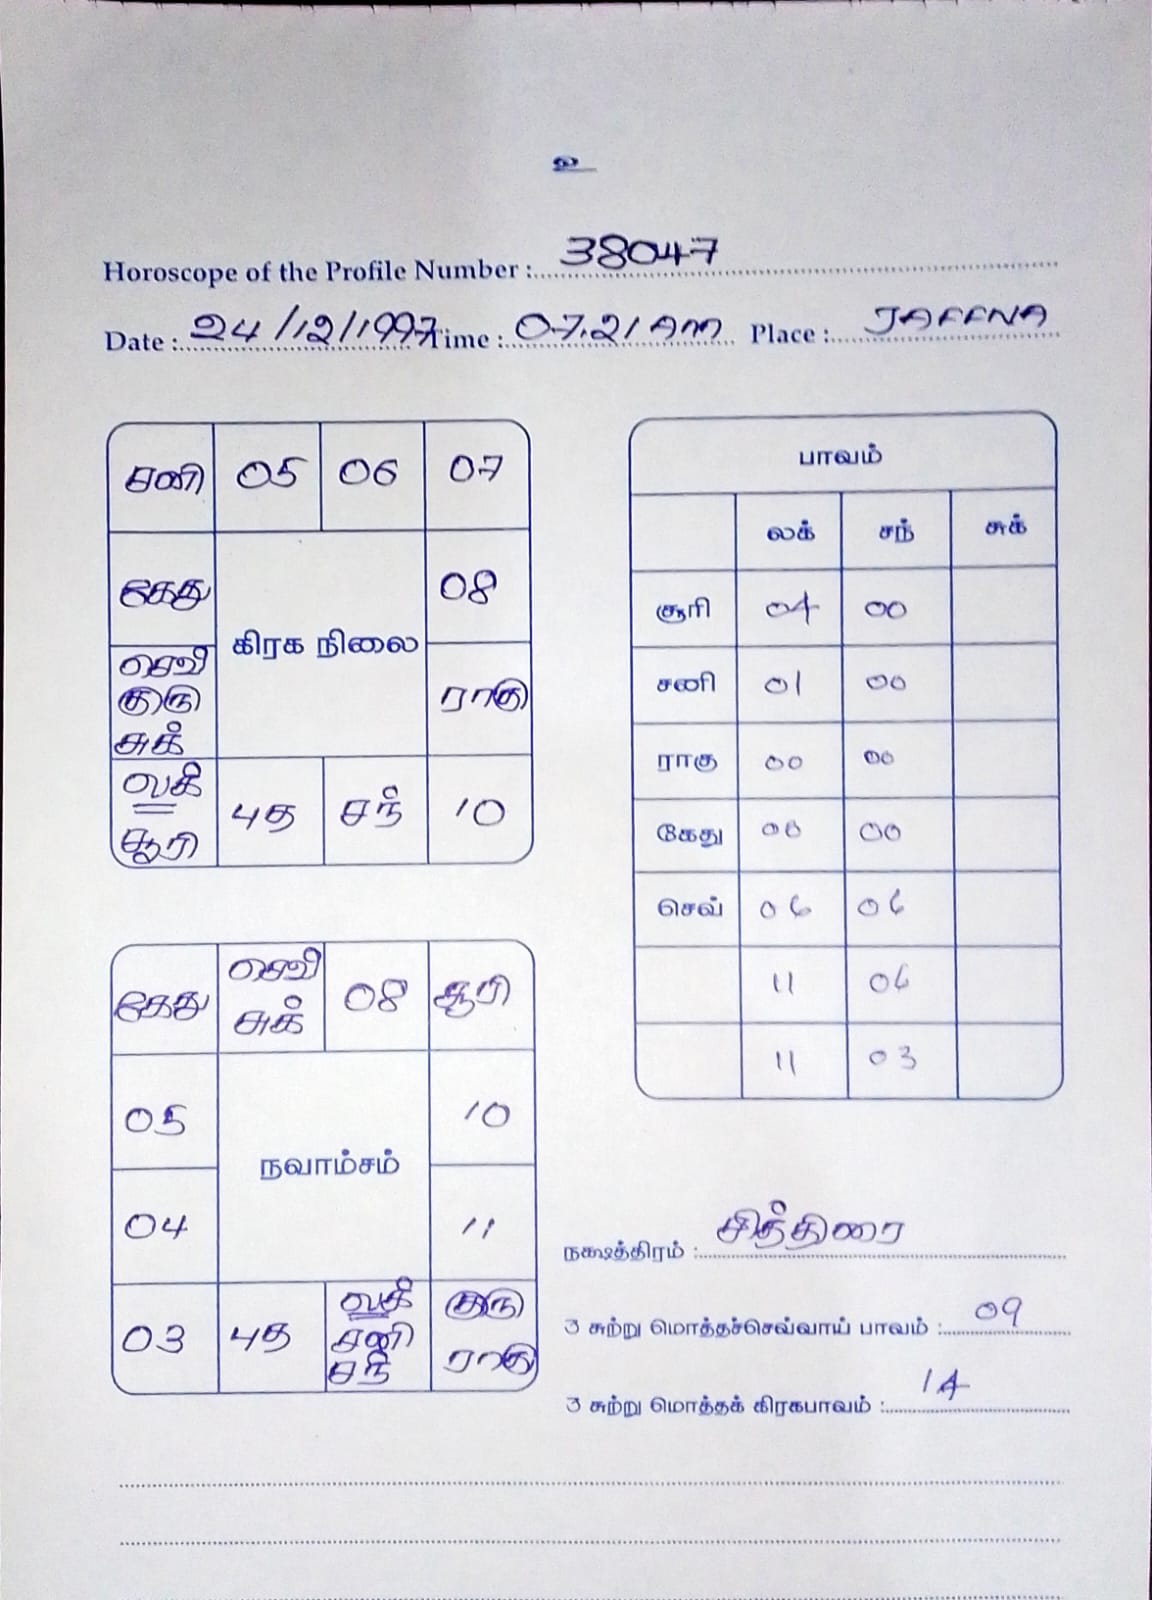 உ
Horoscope of the Profile Number : 38047
Date : 24/12/1997 Time : 07.21 AM Place : JAFFNA
சனி 05 06 07
கேது 08
கிரக நிலை
செவ் குரு சுக் ராகு
லக் சூரி புத சந் 10
பாவம்
லக் சந் சுக்
சூரி 04 00
சனி 01 00
ராகு 00 00
கேது 00 00
செவ் 06 06
11 06
11 03
கேது செவ் சுக் 08 சூரி
05 10
நவாம்சம்
04 11
03 புத லக் சனி சந் குரு ராகு
நக்ஷத்திரம் : சித்திரை
3 சுற்று மொத்தச்செவ்வாய் பாவம் : 09
3 சுற்று மொத்தக் கிரகபாவம் : 14